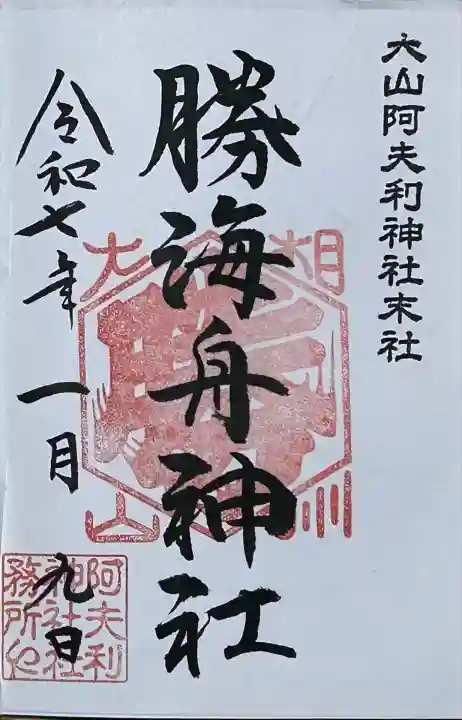 大山阿夫利神社末社
勝海舟神社
令和七年 一月 九日
相州
大山
阿夫利
神社社
務所印